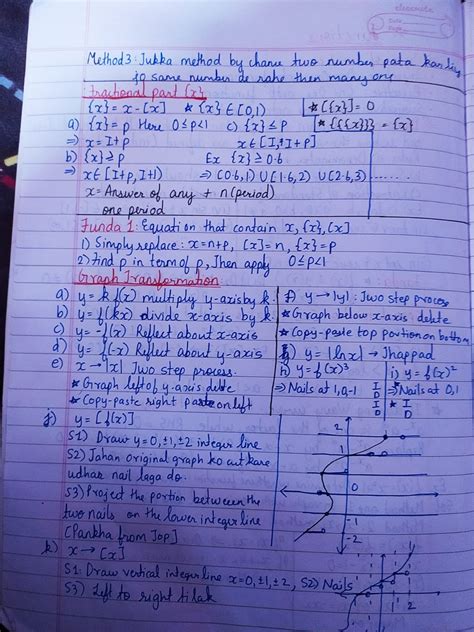 classmate
Date
Page
Method 3: Jukka method by chance two number pata kar liye
jo same number de rahe then many one
Fractional part {x}
{x} = x - [x] * {x} ∈ [0,1) * [{x}] = 0
a) {x} = p Here 0≤p<1 c) {x} ≤ p * {{{x}}} = {x}
⇒ x = I+p x ∈ [I, I+p]
b) {x} ≥ p Ex {x} ≥ 0.6
⇒ x ∈ [I+p, I+1) ⇒ [0.6,1) U [1.6,2) U [2.6,3) ......
x = Answer of any + n (period)
one period
Funda 1: Equation that contain x, {x}, [x]
1) Simply replace: x = n+p, [x] = n, {x} = p
2) Find p in term of p, Then apply 0≤p<1
Graph Transformation
a) y = k f(x) multiply y-axis by k.
b) y = f(kx) divide x-axis by k.
c) y = -f(x) Reflect about x-axis
d) y = f(-x) Reflect about y-axis
e) x → |x| Two step process.
* Graph left of y-axis delete
* Copy-paste right part on left
f) y → |y| : Two step process
* Graph below x-axis delete
* Copy-paste top portion on bottom
g) y = |ln x| → Jhappad
h) y = f(x)³
⇒ Nails at 1,0,-1 I D I D
i) y = f(x)²
⇒ Nails at 0,1
* I D
j) y = [f(x)]
S1) Draw y = 0, ±1, ±2 integer line
S2) Jahan original graph ko cut kare
udhar nail laga do.
S3) Project the portion between the
two nails on the lower integer line
[Pankha from Top]
2
1
0
-1
-2
k) x → [x]
S1: Draw vertical integer line x = 0, ±1, ±2, S2) Nails
S3) Left to right tilak